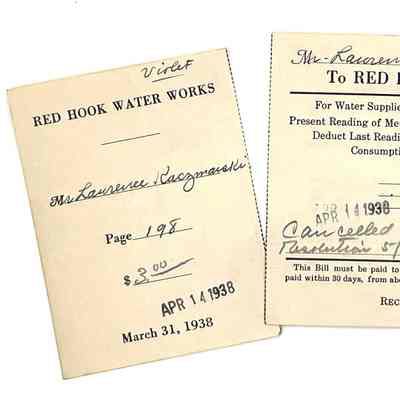 Violet
RED HOOK WATER WORKS
Mr Laurence Kaczmarski
Page 198
$3.00
APR 14 1938
March 31, 1938
Mr. Laurenc
To RED H
For Water Supplie
Present Reading of Me
Deduct Last Readi
Consumpti
APR 14 1938
Cancelled
Resolution 5/
This Bill must be paid to
paid within 30 days, from abo
REC